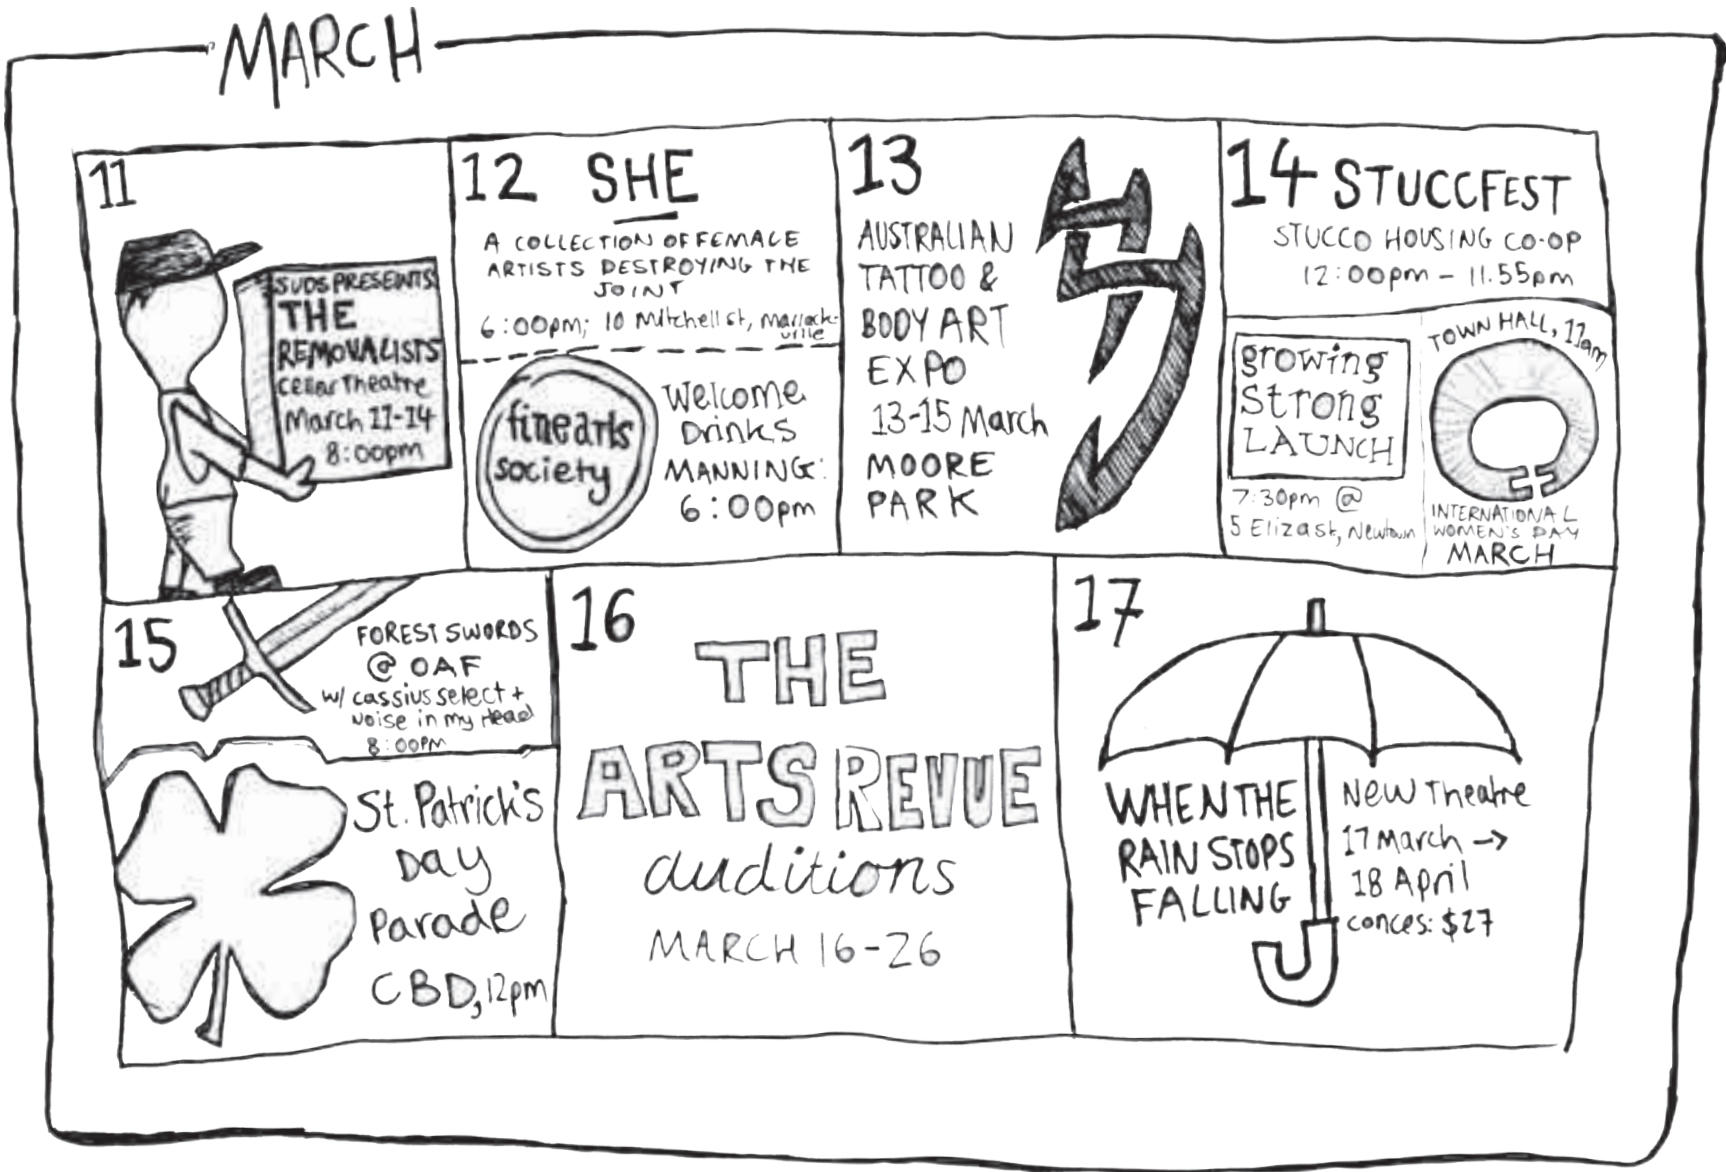 MARCH
11
SUDS PRESENTS
THE
REMOVALISTS
Cellar Theatre
March 11-14
8:00pm
12 SHE
A COLLECTION OF FEMALE
ARTISTS DESTROYING THE
JOINT
6:00pm; 10 Mitchell st, Marrick-
ville
fine arts
society
Welcome
Drinks
MANNING:
6:00pm
13
AUSTRALIAN
TATTOO &
BODY ART
EXPO
13-15 March
MOORE
PARK
14 STUCCFEST
STUCCO HOUSING CO-OP
12:00pm - 11.55pm
growing
Strong
LAUNCH
7:30pm @
5 Eliza st, Newtown
TOWN HALL, 11am
INTERNATIONAL
WOMEN'S DAY
MARCH
15
FOREST SWORDS
@ OAF
w/ cassius select +
Noise in my Head
8:00PM
St. Patrick's
Day
Parade
CBD, 12pm
16
THE
ARTS REVUE
auditions
MARCH 16-26
17
WHEN THE
RAIN STOPS
FALLING
New Theatre
17 March →
18 April
conces: $27